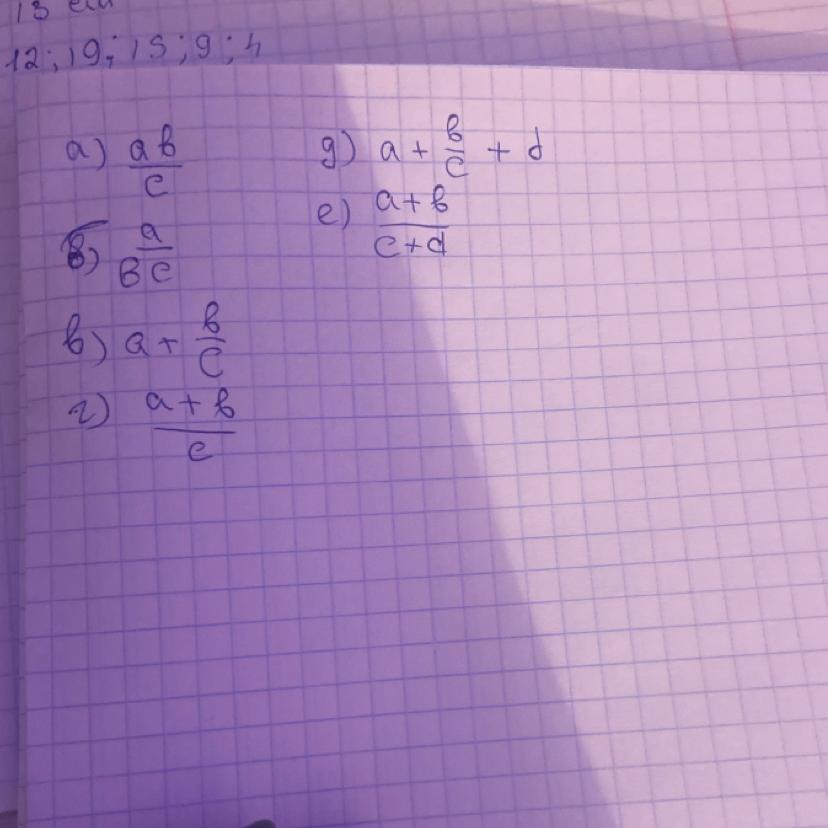 12; 19; 15; 9; 4
а) ab/c
б) a/bc
в) a + b/c
г) a+b/c
д) a + b/c + d
е) a+b/c+d